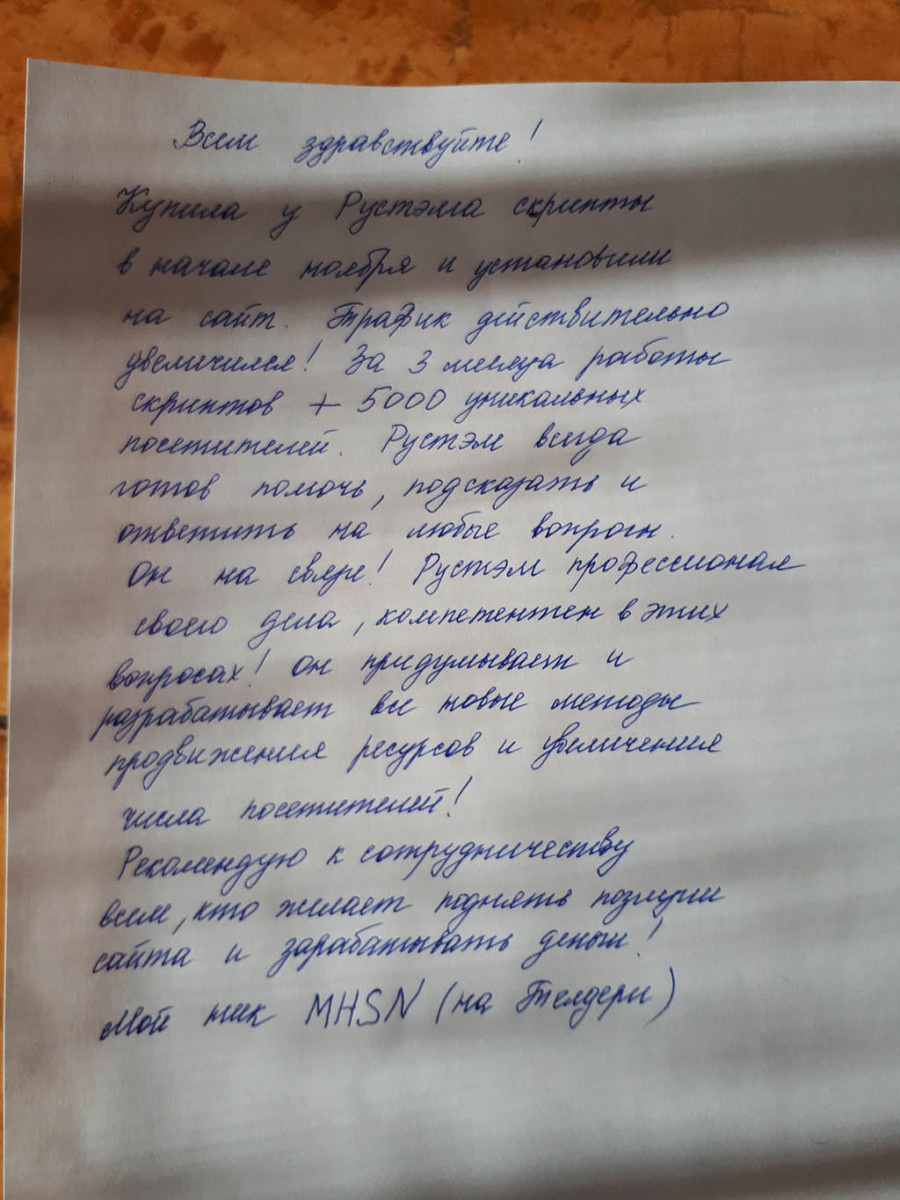 Всем здравствуйте!
Купила у Рустэма скрипты
в начале ноября и установили
на сайт. Трафик действительно
увеличился! За 3 месяца работы
скриптов + 5000 уникальных
посетителей. Рустэм всегда
готов помочь, подсказать и
ответить на любые вопросы.
Он на связи! Рустэм профессионал
своего дела, компетентен в этих
вопросах! Он придумывает и
разрабатывает все новые методы
продвижения ресурсов и увеличения
числа посетителей!
Рекомендую к сотрудничеству
всем, кто желает поднять позиции
сайта и зарабатывать деньги!
Мой ник MHSN (на Телдери)